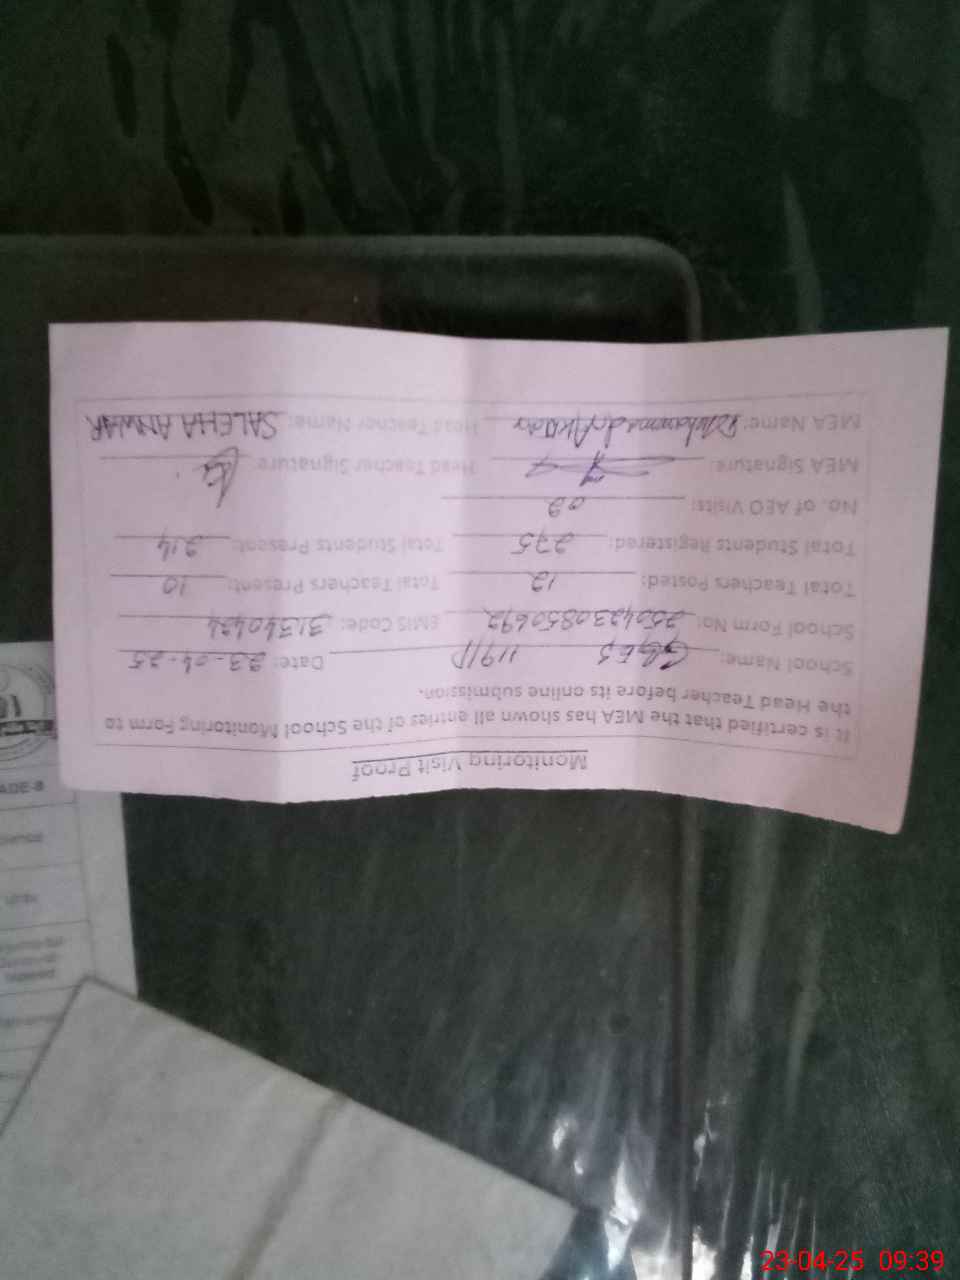 Monitoring Visit Proof
It is certified that the MEA has shown all entries of the School Monitoring Form to
the Head Teacher before its online submission.
School Name: GGES 119/P Date: 23-04-25
School Form No: 2504230850692 EMIS Code: 31340434
Total Teachers Posted: 12 Total Teachers Present: 10
Total Students Registered: 275 Total Students Present: 214
No. of AEO Visits: 02
MEA Signature: Head Teacher Signature:
MEA Name: Muhammad Akbar Head Teacher Name: SALEHA ANWAR
ADE-8
23-04-25 09:39